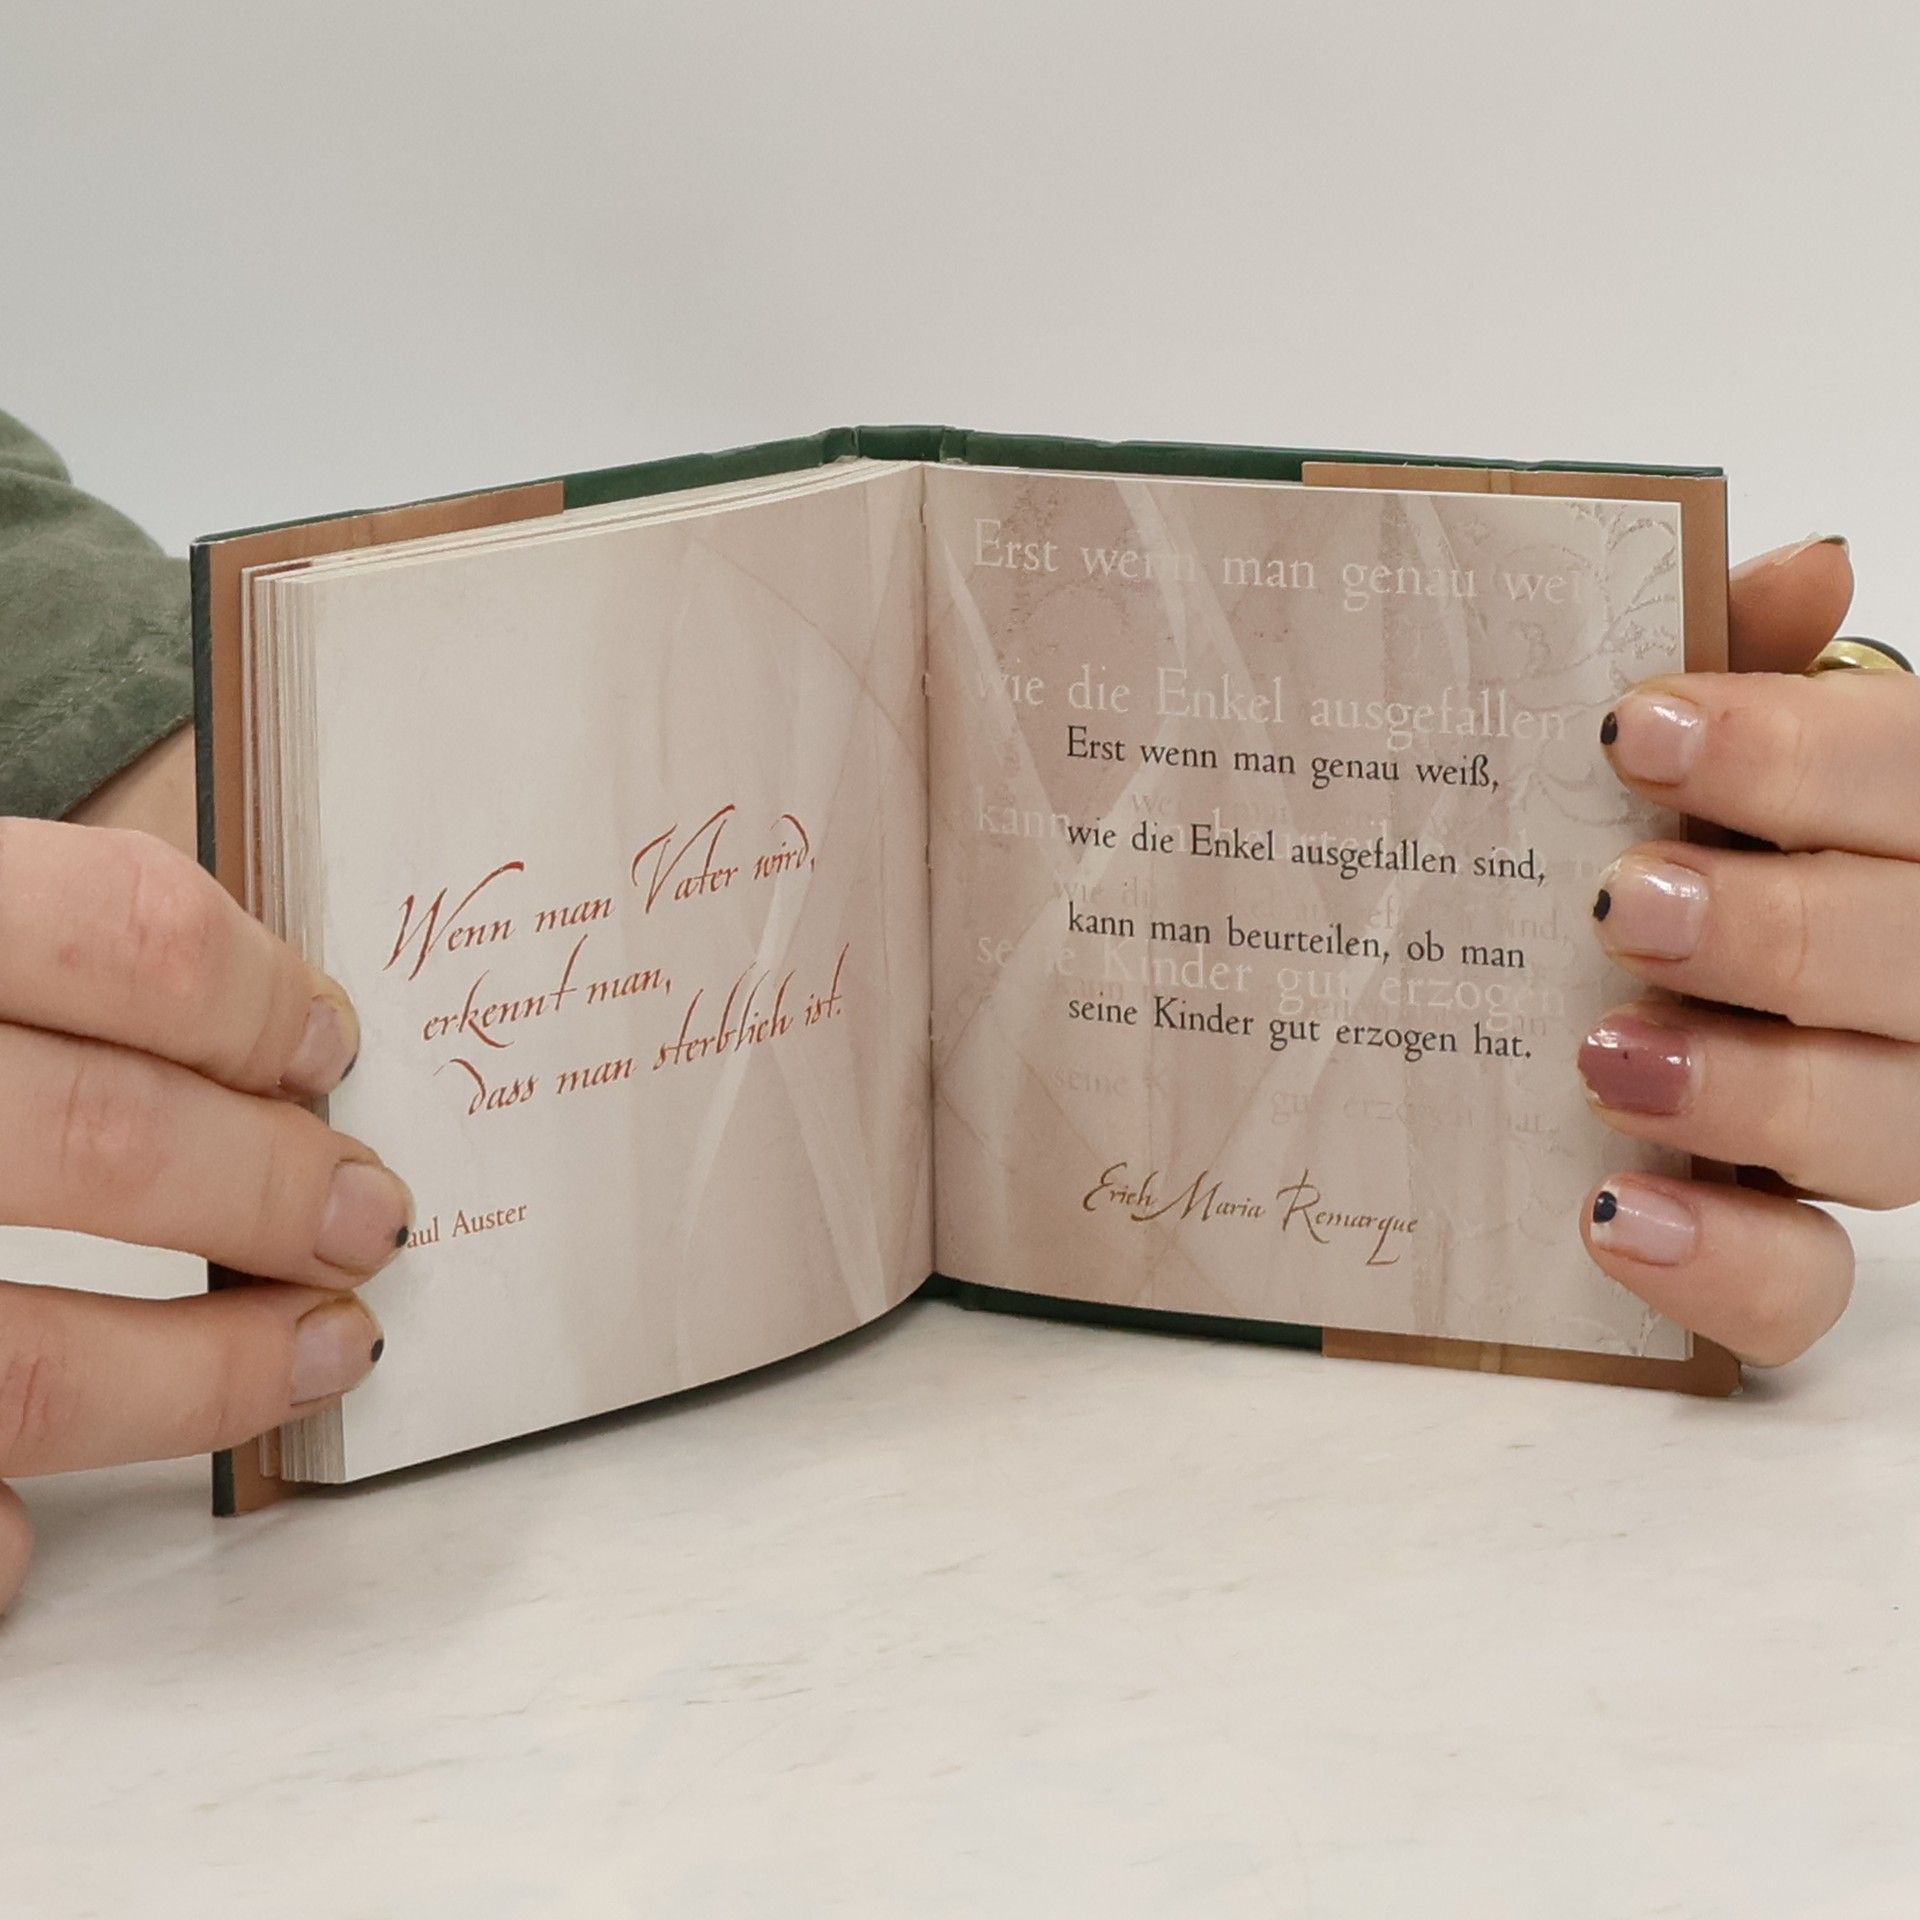 Wenn man Vater wird,
erkennt man,
dass man sterblich ist.
aul Auster
Erst wenn man genau wei
wie die Enkel ausgefallen
seine Kinder gut erzogen
Erst wenn man genau weiß,
wie die Enkel ausgefallen sind,
kann man beurteilen, ob man
seine Kinder gut erzogen hat.
Erich Maria Remarque